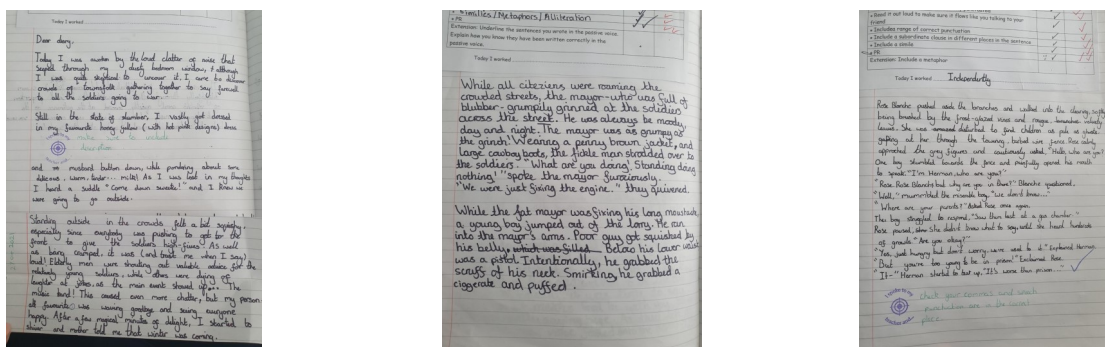 Today I worked
Dear diary,
Today I was awoken by the loud clatter of noise that
seeped through my dusty bedroom window, & although
I was quite skeptical to uncover it, I came to discover
crowds of townsfolk gathering together to say farewell
to all the soldiers going to war.
Still in the state of slumber, I vastly got dressed
in my favourite honey yellow (with hot pink designs) dress
make sure to include
and a mustard button down, while pondering about some
delicious, warm, tender... milk! As I was lost in my thoughts
I heard a subtle "Come down sweetie!" and I knew we
were going to go outside.
Standing outside in the crowds felt a bit squashy,
especially since everybody was pushing to get to the
front to give the soldiers high-fives. As well
as being cramped, it was (and trust me when I say)
loud! Elderly men were shouting out valuable advice for the
relatively young soldiers, while others were dying of
laughter at jokes, as the main event showed up... The
military band! This caused even more chatter, but my person-
al favourite was waving goodbye and seeing everyone
happy. After a few magical minutes of delight, I started to
shiver and mother told me that winter was coming.
• Similies/Metaphors/Alliteration
• PR
Extension: Underline the sentences you wrote in the passive voice.
Explain how you know they have been written correctly in the
passive voice.
Today I worked
While all citeziens were roaming the
crowded streets, the mayor-who was full of
blubber-grumpily grinned at the soldiers
across the street. He was always be moody,
day and night. The mayor was as grumpy as
the grinch. Wearing a penny brown jacket, and
large cowboy boots, the fickle man strodded over to
the soldiers. "What are you doing! Standing doing
nothing!" spoke the mayor furociously.
"We were just fixing the engine." they quivered.
While the fat mayor was fixing his long moustache,
a young boy jumped out of the lorry. He ran
into the mayr's arms. Poor guy got squished by
his belly which was filled. Below his lower waist
was a pistol. Intentionally, he grabbed the
scruff of his neck. Smirking, he grabbed a
ciggerate and puffed.
• Read it out loud to make sure it flows like you talking to your
friend
• Includes range of correct punctuation
• Include a subordinate clause in different places in the sentence
• Include a simile
• PR
Extension: Include a metaphor
Today I worked Independently
Rose Blanche pushed aside the branches and walked into the clearing, softly
being brushed by the frost-glazed vines and rogue branches velvety
leaves. She was disturbed to find children as pale as ghosts
gazing out her through the towering, barbed wire fence. Rose calmly
approached the grey figures and cautiously asked, "Hello, who are you?"
One boy stumbled towards the fence and painfully opened his mouth
to speak. "I'm Herman, who are you?"
"Rose. Rose Blanche but why are you in there?" Blanche questioned.
"Well," mummbled the miserable boy, "we don't know..."
"Where are your parents?" Asked Rose once again.
This boy struggled to respond. "Saw them last at a gas chamber."
Rose paused, slow. She didn't know what to say, until she heard hundreds
of growls. "Are you okay?"
"Yes, just hungry but don't worry, we're used to it." Explained Herman.
"But you're too young to be in prison!" Exclaimed Rose.
"It-" Herman started to tear up, "It's worse than prison..."
check your commas and small
in the correct
place.